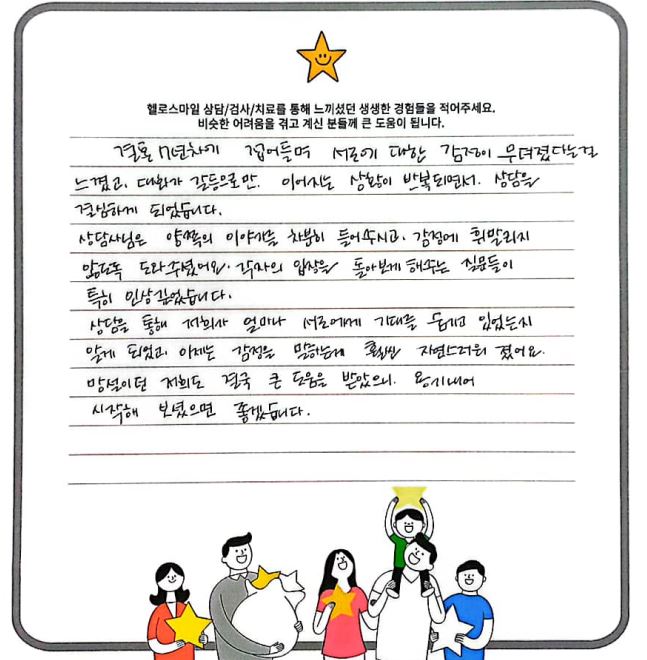 헬로스마일 상담/검사/치료를 통해 느끼셨던 생생한 경험들을 적어주세요.
비슷한 어려움을 겪고 계신 분들께 큰 도움이 됩니다.
결혼 7년차에 접어들며 서로에 대한 감정이 무뎌졌다는걸
느꼈고, 대화가 갈등으로만 이어지는 상황이 반복되면서 상담을
결심하게 되었습니다.
상담사님은 양쪽의 이야기를 차분히 들어주시고, 감정에 휘말리지
않도록 도와주셨어요. 각자의 입장을 돌아보게 해주는 질문들이
특히 인상깊었습니다.
상담을 통해 저희가 얼마나 서로에게 기대를 두고 있었는지
알게 되었고, 이제는 감정을 말하는게 훨씬 자연스러워 졌어요.
망설이던 저희도 결국 큰 도움을 받았으니, 용기내어
시작해 보셨으면 좋겠습니다.